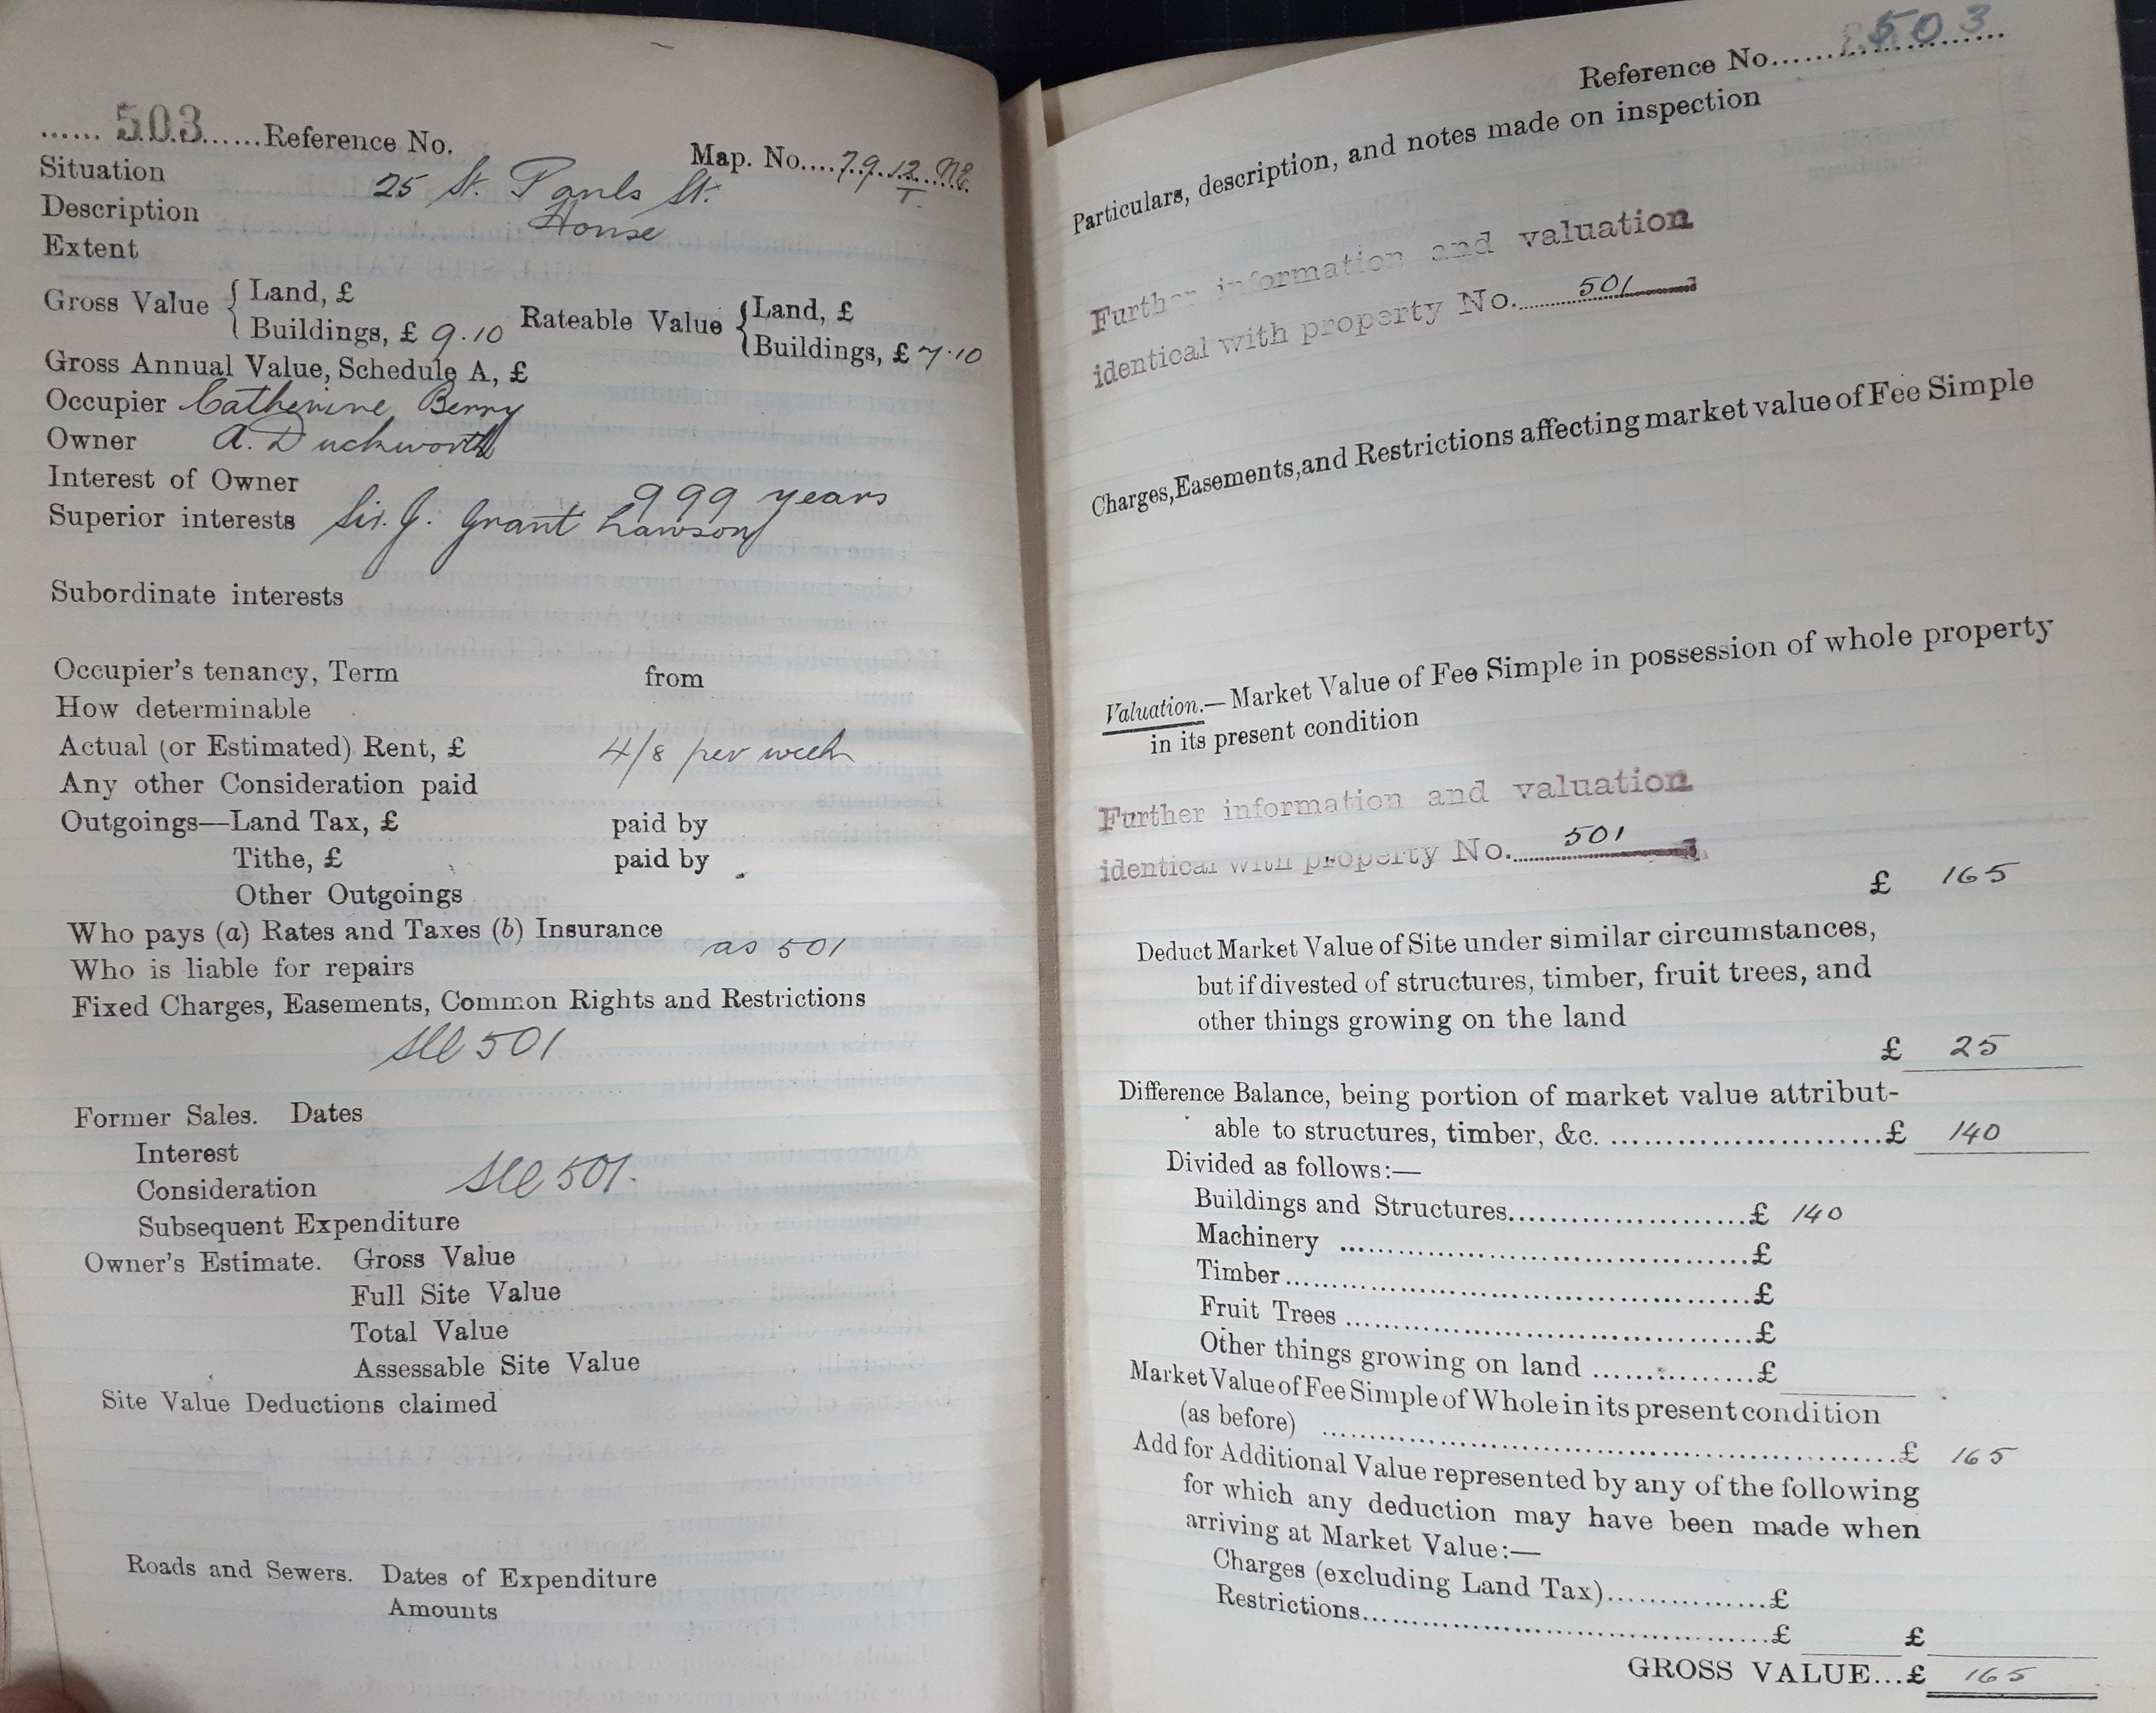 ...... 503 ......Reference No.
Map. No....79.12. NE.
T.
Situation 25 St. Pauls St.
Description House
Extent
Gross Value { Land, £
Buildings, £ 9.10
Rateable Value { Land, £
Buildings, £ 7.10
Gross Annual Value, Schedule A, £
Occupier Catherine Berry
Owner A. Duckworth
Interest of Owner 999 years
Superior interests Sir. J. Grant Lawson
Subordinate interests
Occupier's tenancy, Term from
How determinable
Actual (or Estimated) Rent, £ 4/8 per week
Any other Consideration paid
Outgoings—Land Tax, £ paid by
Tithe, £ paid by
Other Outgoings
Who pays (a) Rates and Taxes (b) Insurance
as 501
Who is liable for repairs
Fixed Charges, Easements, Common Rights and Restrictions
See 501
Former Sales. Dates
Interest
Consideration See 501.
Subsequent Expenditure
Owner's Estimate. Gross Value
Full Site Value
Total Value
Assessable Site Value
Site Value Deductions claimed
Roads and Sewers. Dates of Expenditure
Amounts
Reference No. 503
Particulars, description, and notes made on inspection
Further information and valuation
identical with property No. 501
Charges, Easements, and Restrictions affecting market value of Fee Simple
Valuation.—Market Value of Fee Simple in possession of whole property
in its present condition
Further information and valuation
identical with property No. 501
£ 165
Deduct Market Value of Site under similar circumstances,
but if divested of structures, timber, fruit trees, and
other things growing on the land
£ 25
Difference Balance, being portion of market value attribut-
able to structures, timber, &c. ........................£ 140
Divided as follows:—
Buildings and Structures........................£ 140
Machinery ........................£
Timber........................£
Fruit Trees ........................£
Other things growing on land ................£
Market Value of Fee Simple of Whole in its present condition
(as before) ........................£ 165
Add for Additional Value represented by any of the following
for which any deduction may have been made when
arriving at Market Value:—
Charges (excluding Land Tax)................£
Restrictions........................£ £
GROSS VALUE...£ 165